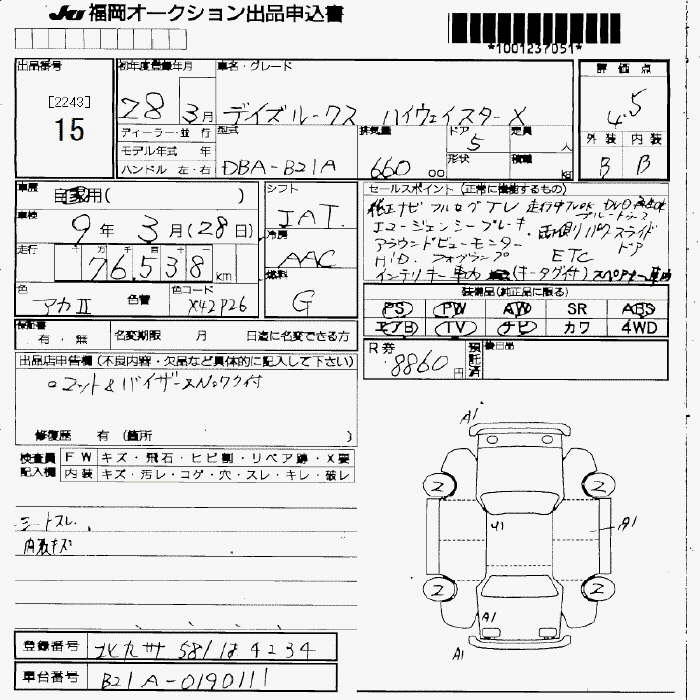 JU 福岡オークション出品申込書
*1001237051*
出品番号
[2243]
15
初年度登録年月
28 3月
車名・グレード
デイズルークス ハイウェイスターX
評価点
4.5
ディーラー・並行
モデル年式 年
ハンドル 左・右
型式
DBA-B21A
排気量
660 cc
ドア
5
形状
定員
人
積載
kg
外装 内装
B B
車歴
自家用( )
車検
9年3月(28日)
走行
千 万 千 百 十 一
76,538km
色
アカⅡ
色替
色コード
X42P26
シフト
IAT
冷房
AAC
燃料
G
セールスポイント(正常に機能するもの)
純正ナビ フルセグTV 走行中TVOK DVD再生OK
エマージェンシーブレーキ ブルートゥース
アラウンドビューモニター 両側パワスライドドア
H.I.D. フォグランプ ETC
インテリキー
装備品(純正品に限る)
PS PW AW SR ABS
エアB TV ナビ カワ 4WD
保証書
有・無
名変期限 月 日迄に名変できる方
R券
8860円
預託済
後日品
出品店申告欄(不良内容・欠品など具体的に記入して下さい)
○マット&バイザー
修復歴 有(箇所 )
検査員記入欄
FW キズ・飛石・ヒビ割・リペア跡・X要
内装 キズ・汚レ・コゲ・穴・スレ・キレ・破レ
シートスレ.
内張キズ
A1
2 2
U1 A1
2 2
A1
A1
登録番号
北九州 581 は 4234
車台番号
B21A-0190111